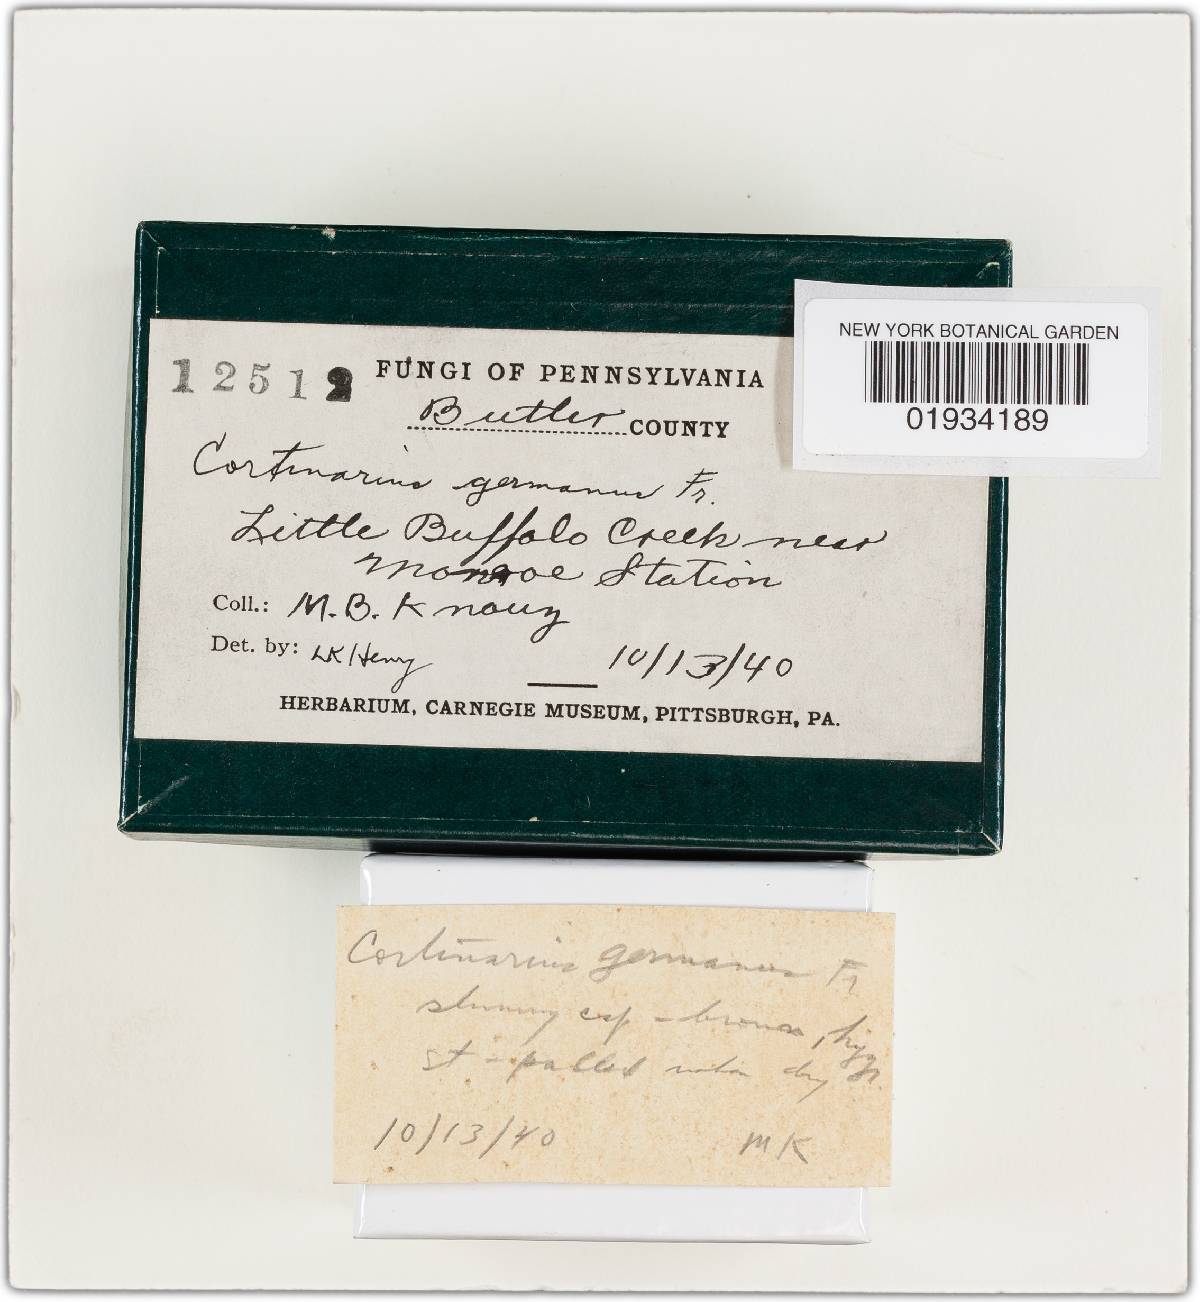 12512
FUNGI OF PENNSYLVANIA
Butler COUNTY
Cortinarius germanus Fr.
Little Buffalo Creek near
Monroe Station
Coll.: M. B. Knouz
Det. by: LK Henry
10/13/40
HERBARIUM, CARNEGIE MUSEUM, PITTSBURGH, PA.
NEW YORK BOTANICAL GARDEN
01934189
Cortinarius germanus Fr
cap - brown, hygr.
st - pallid when dry
10/13/40
MK